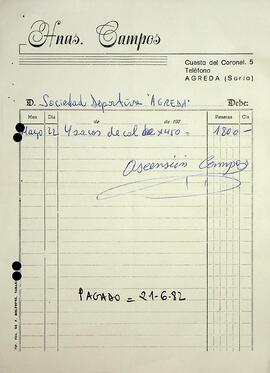 Hnas. Campos
Cuesta del Coronel, 5
Teléfono
AGREDA (Soria)
D. Sociedad Deportiva "AGREDA" Debe:
Mes Día de de 197 Pesetas Cts.
Mayo 22 4 sacos de cal x 450 = 1800 —
Ascensión Campos
PAGADO = 21-6-82